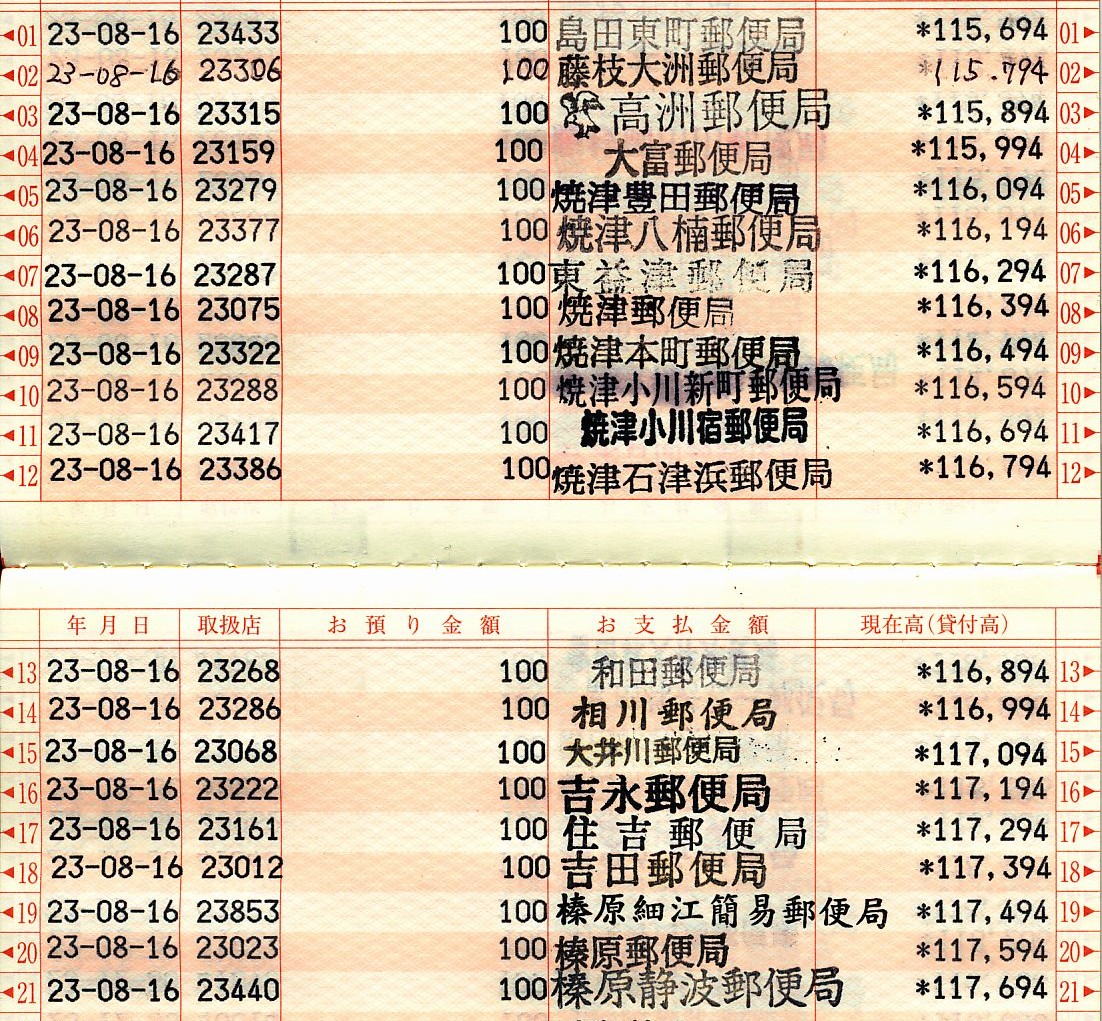 ◀01 23-08-16 23433 100 島田東町郵便局 *115,694 01▶
◀02 23-08-16 23306 100 藤枝大洲郵便局 *115.794 02▶
◀03 23-08-16 23315 100 高洲郵便局 *115,894 03▶
◀04 23-08-16 23159 100 大富郵便局 *115,994 04▶
◀05 23-08-16 23279 100 焼津豊田郵便局 *116,094 05▶
◀06 23-08-16 23377 100 焼津八楠郵便局 *116,194 06▶
◀07 23-08-16 23287 100 東益津郵便局 *116,294 07▶
◀08 23-08-16 23075 100 焼津郵便局 *116,394 08▶
◀09 23-08-16 23322 100 焼津本町郵便局 *116,494 09▶
◀10 23-08-16 23288 100 焼津小川新町郵便局 *116,594 10▶
◀11 23-08-16 23417 100 焼津小川宿郵便局 *116,694 11▶
◀12 23-08-16 23386 100 焼津石津浜郵便局 *116,794 12▶
年月日 取扱店 お預り金額 お支払金額 現在高(貸付高)
◀13 23-08-16 23268 100 和田郵便局 *116,894 13▶
◀14 23-08-16 23286 100 相川郵便局 *116,994 14▶
◀15 23-08-16 23068 100 大井川郵便局 *117,094 15▶
◀16 23-08-16 23222 100 吉永郵便局 *117,194 16▶
◀17 23-08-16 23161 100 住吉郵便局 *117,294 17▶
◀18 23-08-16 23012 100 吉田郵便局 *117,394 18▶
◀19 23-08-16 23853 100 榛原細江簡易郵便局 *117,494 19▶
◀20 23-08-16 23023 100 榛原郵便局 *117,594 20▶
◀21 23-08-16 23440 100 榛原静波郵便局 *117,694 21▶